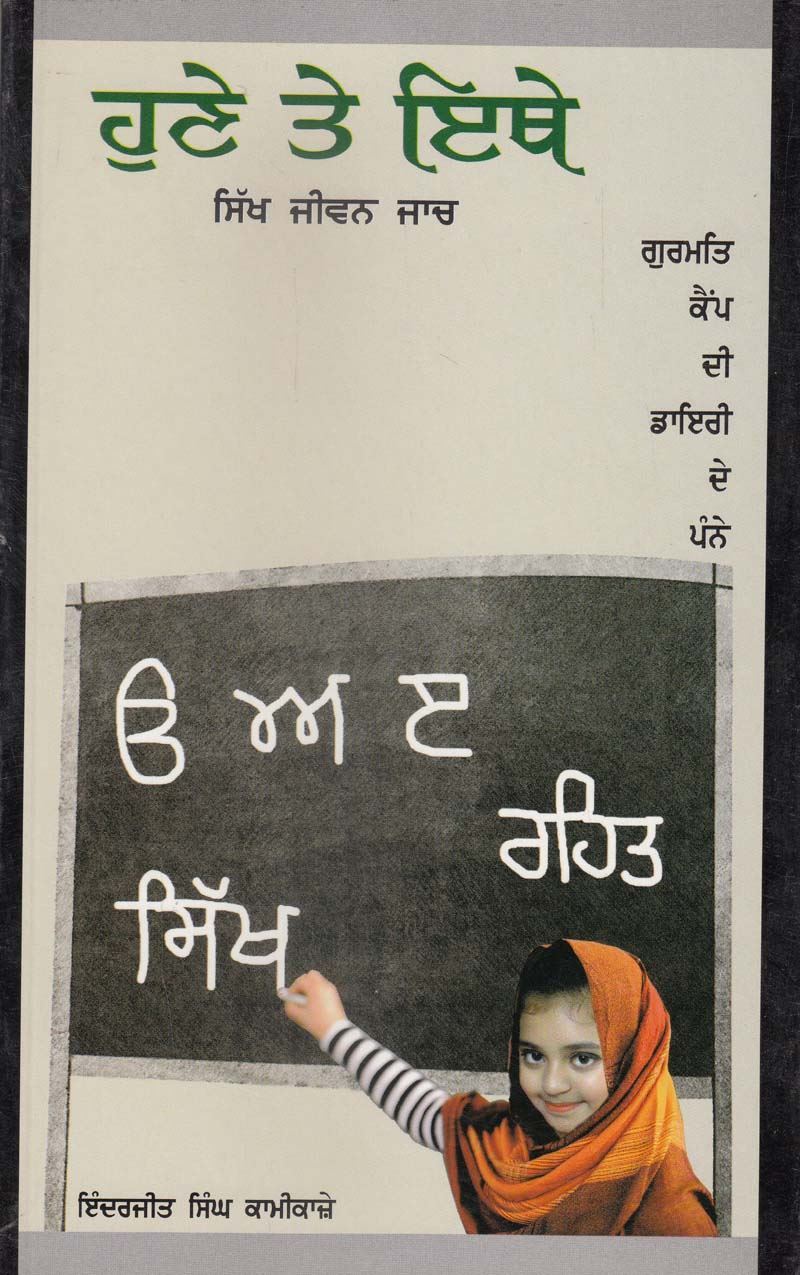 ਹੁਣੇ ਤੇ ਇੱਥੇ
ਸਿੱਖ ਜੀਵਨ ਜਾਚ
ਗੁਰਮਤਿ
ਕੈਂਪ
ਦੀ
ਡਾਇਰੀ
ਦੇ
ਪੰਨੇ
ੳ ਅ ੲ
ਰਹਿਤ
ਸਿੱਖ
ਇੰਦਰਜੀਤ ਸਿੰਘ ਕਾਮੀਕਾਜ਼ੇ